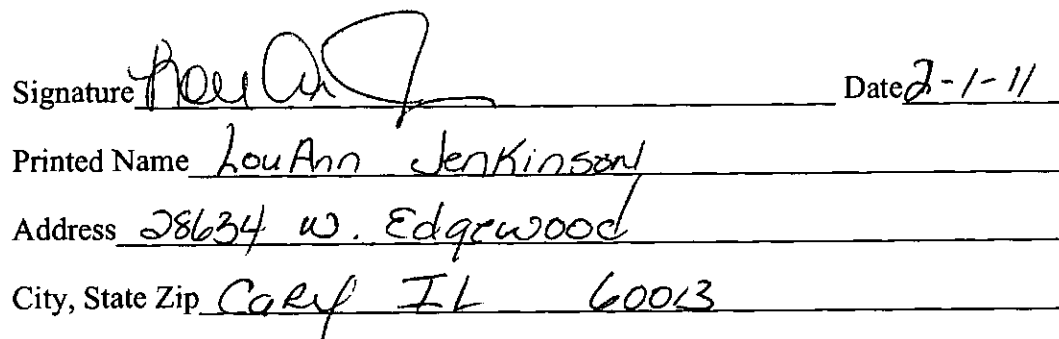 Signature Lou Ann J Date 2-1-11
Printed Name LouAnn Jenkinson
Address 28634 W. Edgewood
City, State Zip Cary IL 60013